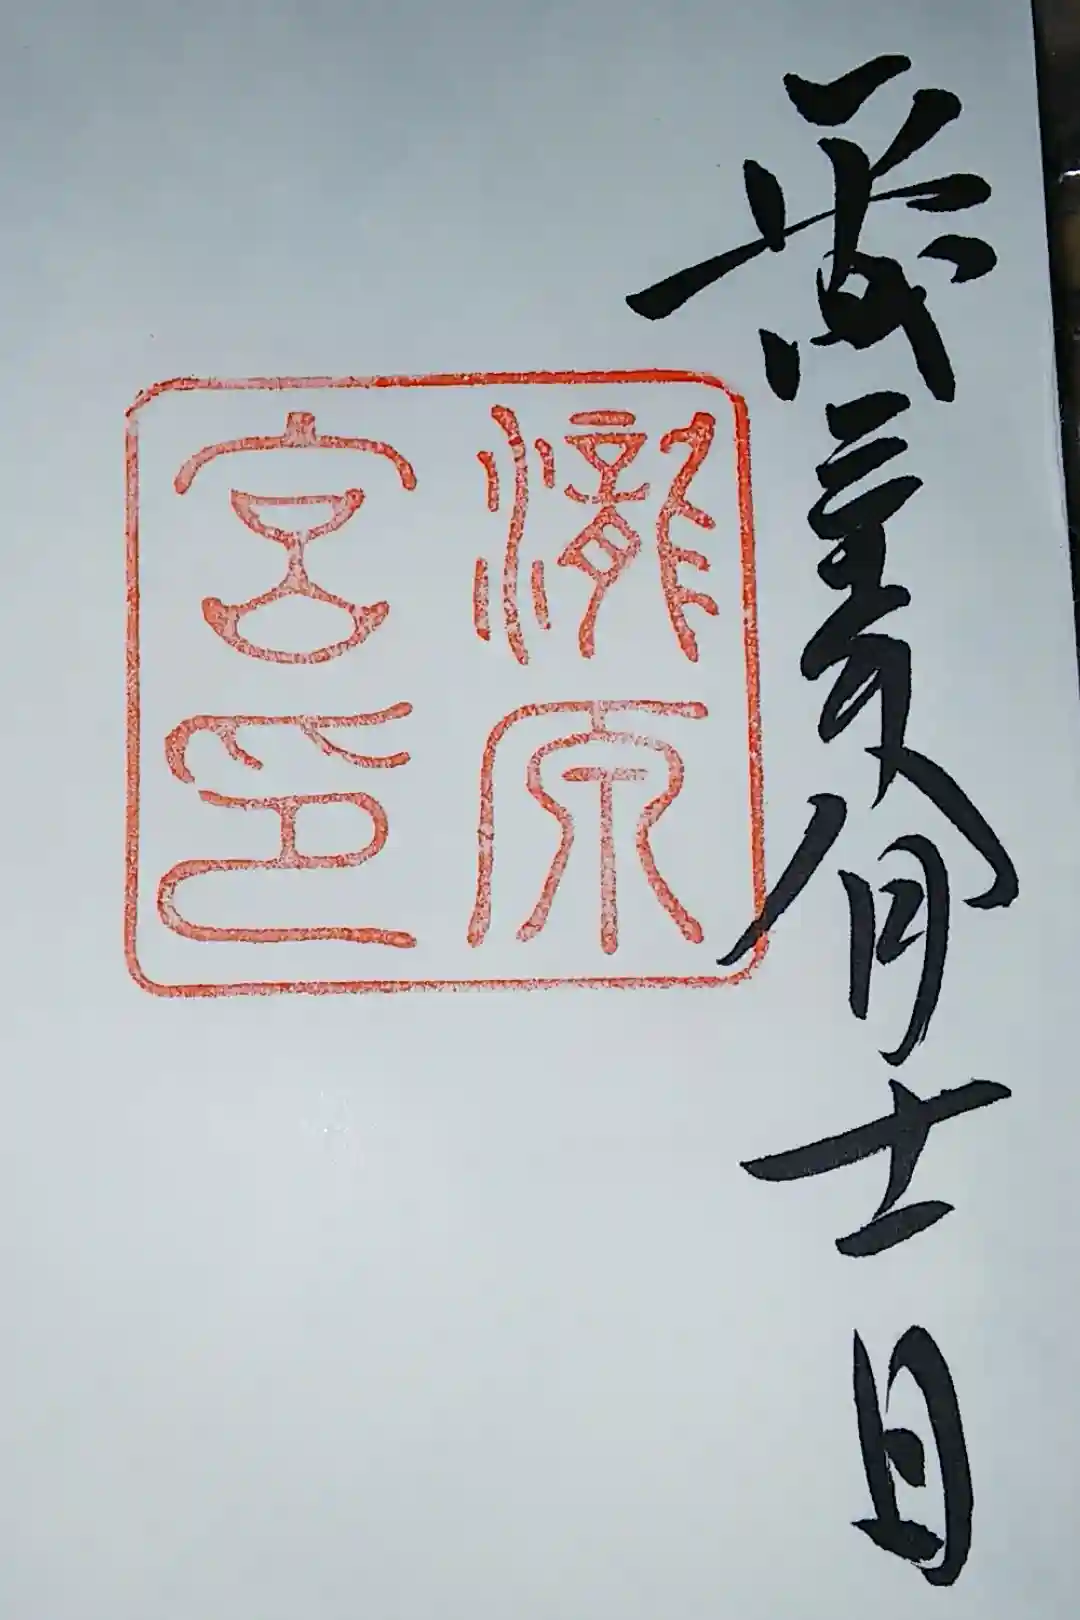 平成二十一年八月十一日
瀧原
宮印